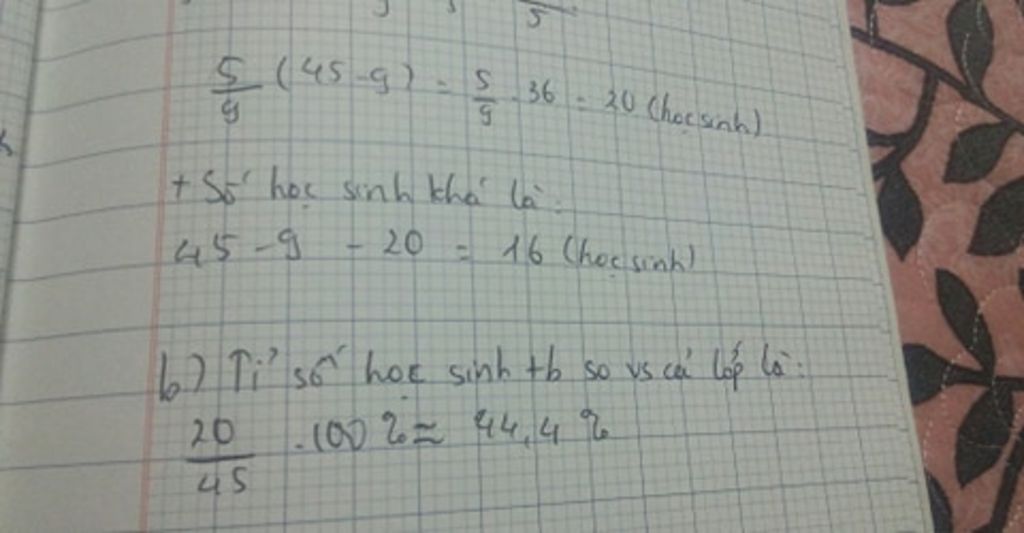 5
5/9 (45 - 9) = 5/9 . 36 = 20 (học sinh)
+ Số học sinh khá là:
45 - 9 - 20 = 16 (học sinh)
b) Tỉ số học sinh tb so vs cả lớp là:
20/45 . 100 % ≈ 44,4 %